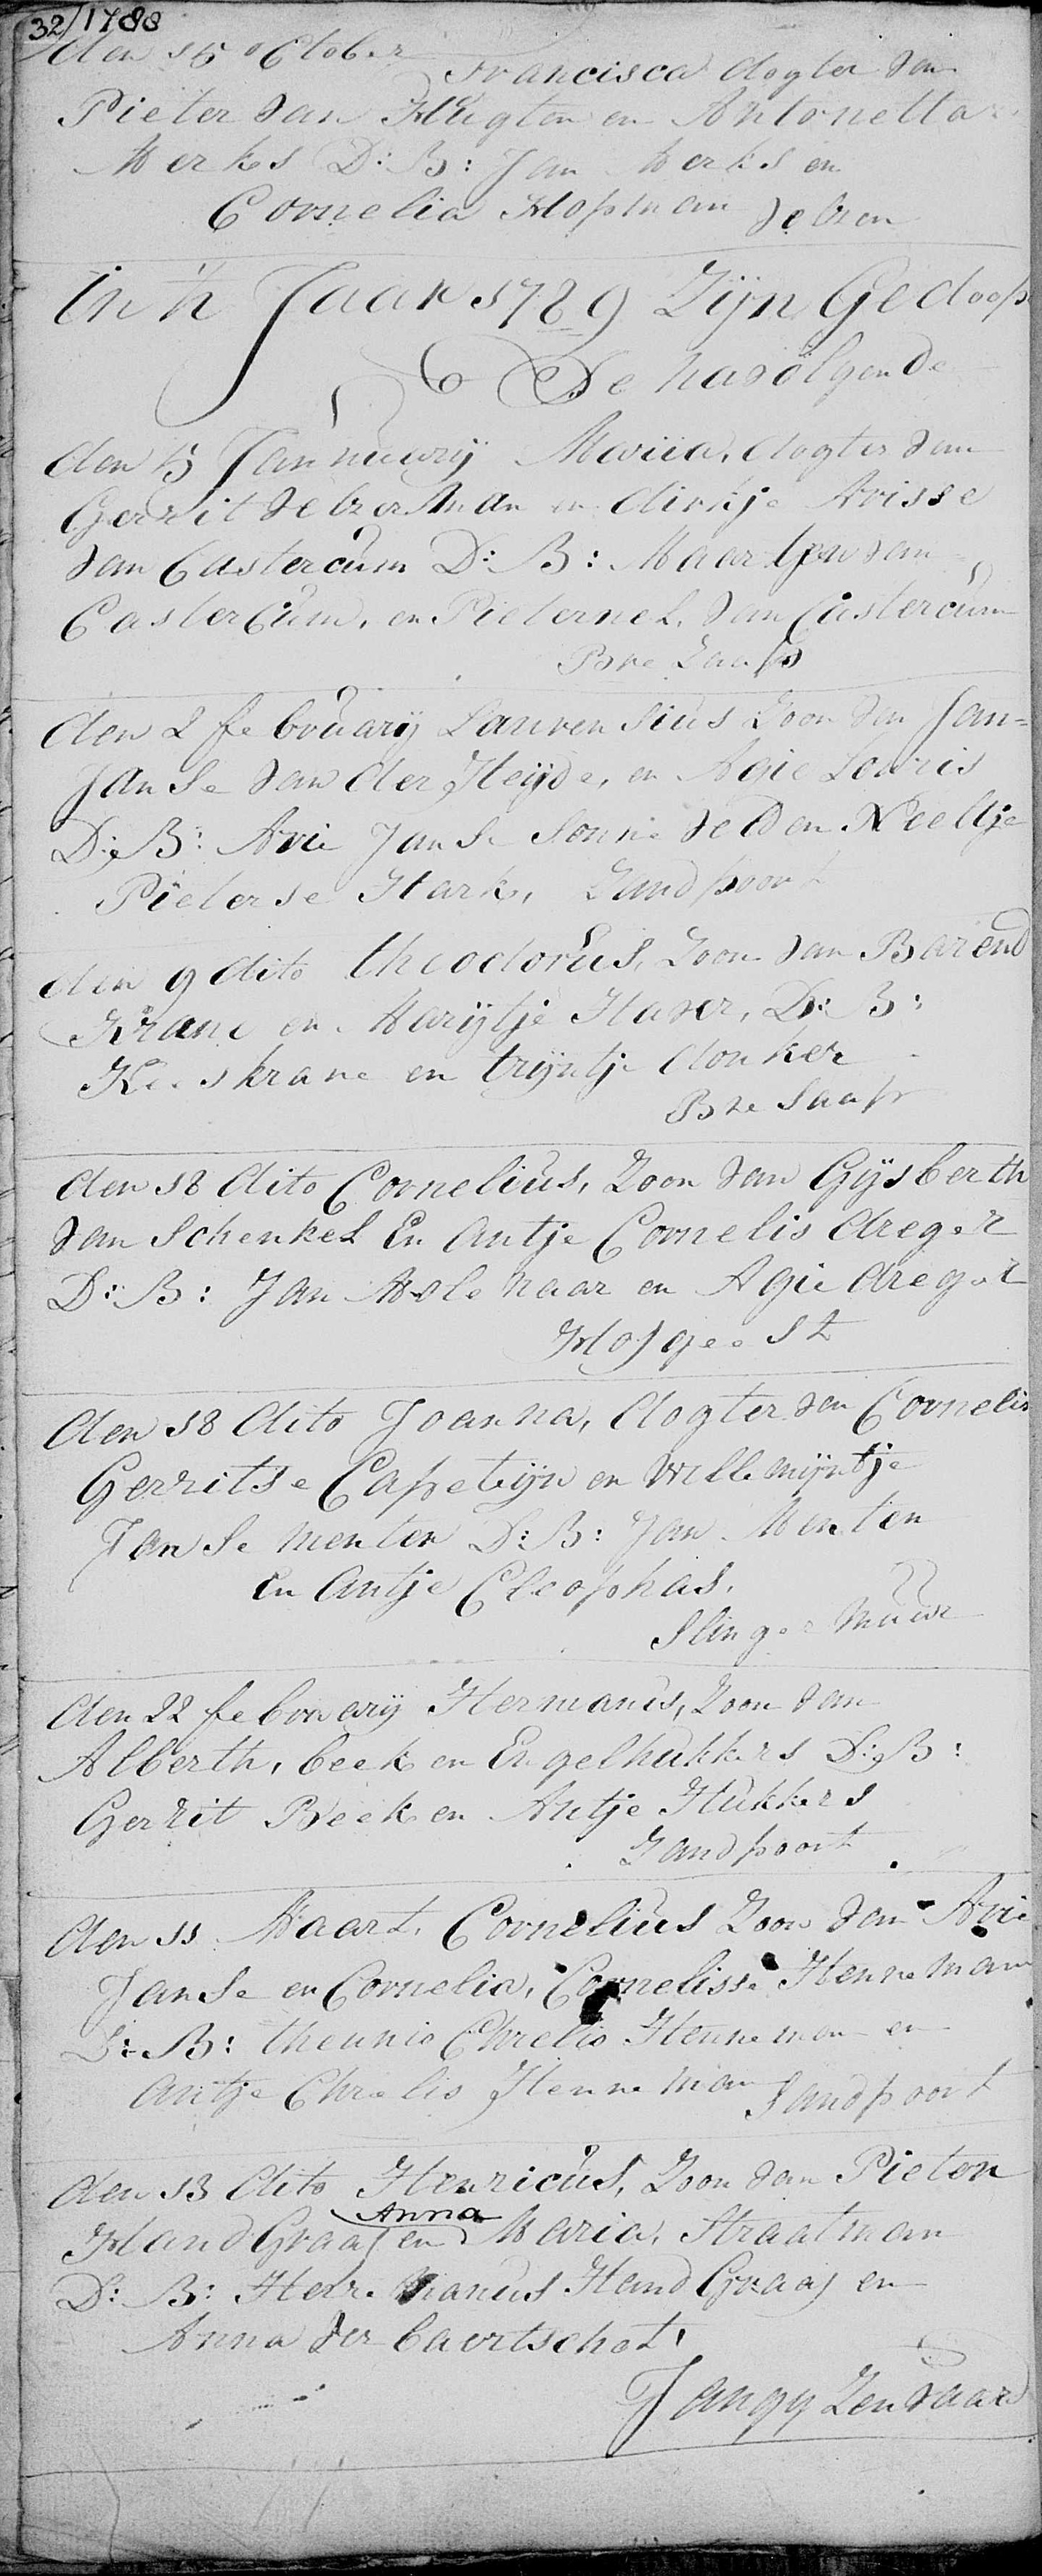 32/1788
den 15 october
Francisca dogter van
Pieter van Hugten en Antonetta
Merks D: B: Jan Merks en
Cornelia Hopman Velzen
In 't Jaar 1789 Zijn Gedoop
De navolgende
den 15 Jannuarij Maria, dogter van
Gerrit Velzerman en dirkje Arisse
van Castercum D: B: Maarten van
Castercum, en Pieternel van Castercum
Bre Zaap
den 2 february Laurensius Zoon van Jan=
Janse van der Heijde, en Agie Louris
D: B: Arie Janse Sonneveld en Neeltje
Pieterse Hark, Zandpoort
den 9 dito theodorus, Zoon van Barend
Krane en Marijtje Haver, D: B:
Kees krane en trijntje donker
Bre Saap
den 18 dito Cornelius, Zoon van Gijsberth
van Schenkel En Antje Cornelis dreger
D: B: Jan Molenaar en Agie dreger
Hofgeest
den 18 dito Joanna, dogter van Cornelis
Gerritse Capeteijn en Willemijntje
Janse menten D: B: Jan Menten
en Antje Cleophas.
Slinger Muur
den 22 februarij Hermanus, Zoon van
Alberth, beek en Engel hukkers D: B:
Gerrit Beek en Antje Hukkers
Zandpoort
den 11 Maart, Cornelius Zoon van Arie
Janse en Cornelia, Cornelisse Henneman
D: B: theunis Chrelis Henneman en
antje Chrelis Henneman Sandpoort
den 13 dito Henricus, Zoon van Pieter
Anna
HandGraaf en Maria, Straatman
D: B: Hermanus HandGraaf en
Anna ver Caertschot,